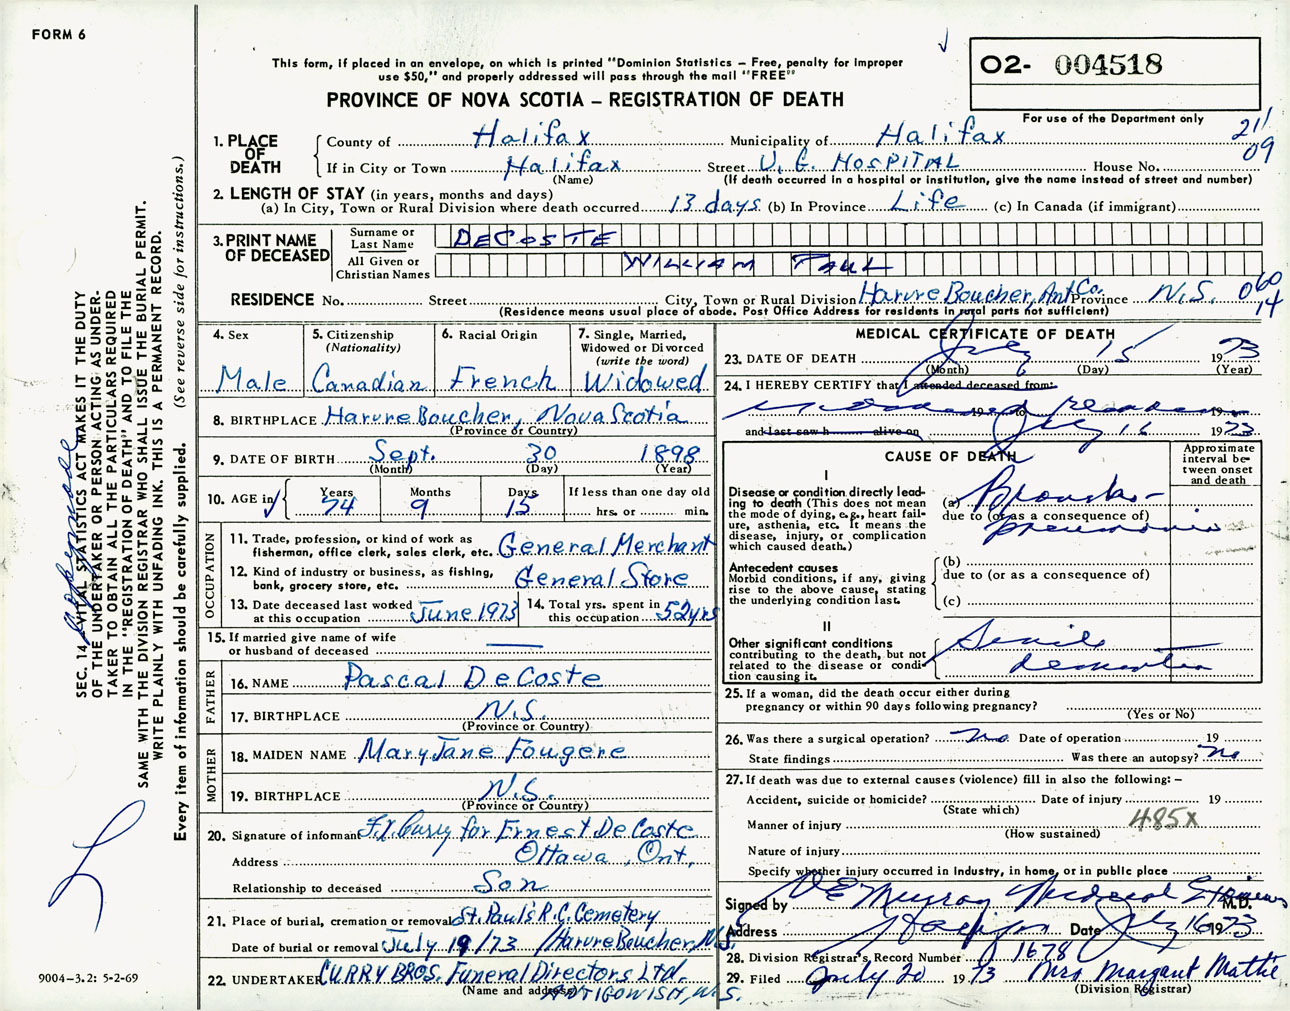 FORM 6
This form, if placed in an envelope, on which is printed "Dominion Statistics – Free, penalty for improper
use $50," and properly addressed will pass through the mail "FREE"
PROVINCE OF NOVA SCOTIA – REGISTRATION OF DEATH
O2- 004518
For use of the Department only
211
09
1. PLACE OF DEATH
County of Halifax Municipality of Halifax
If in City or Town Halifax Street V. G. HOSPITAL House No.
(Name) (If death occurred in a hospital or institution, give the name instead of street and number)
2. LENGTH OF STAY (in years, months and days)
(a) In City, Town or Rural Division where death occurred 13 days (b) In Province Life (c) In Canada (if immigrant)
3. PRINT NAME OF DECEASED
Surname or Last Name DECOSTE
All Given or Christian Names WILLIAM PAUL
RESIDENCE No. Street City, Town or Rural Division Harvre Boucher, Ant Co. Province N.S. 060
14
(Residence means usual place of abode. Post Office Address for residents in rural parts not sufficient)
4. Sex
Male
5. Citizenship
(Nationality)
Canadian
6. Racial Origin
French
7. Single, Married,
Widowed or Divorced
(write the word)
Widowed
8. BIRTHPLACE Harvre Boucher, Nova Scotia
(Province or Country)
9. DATE OF BIRTH Sept. 30 1898
(Month) (Day) (Year)
10. AGE in Years Months Days If less than one day old
74 9 15 hrs. or min.
OCCUPATION
11. Trade, profession, or kind of work as
fisherman, office clerk, sales clerk, etc. General Merchant
12. Kind of industry or business, as fishing,
bank, grocery store, etc. General Store
13. Date deceased last worked
at this occupation June 1973
14. Total yrs. spent in
this occupation 52 yrs
15. If married give name of wife
or husband of deceased
FATHER
16. NAME Pascal DeCoste
17. BIRTHPLACE N.S.
(Province or Country)
MOTHER
18. MAIDEN NAME Mary Jane Fougere
19. BIRTHPLACE N.S.
(Province or Country)
20. Signature of informant F.J. Curry for Ernest DeCoste
Address Ottawa, Ont,
Relationship to deceased Son
21. Place of burial, cremation or removal St. Paul's R.C. Cemetery
Date of burial or removal July 19/73 / Harvre Boucher, N.S.
22. UNDERTAKER CURRY BROS. Funeral Directors Ltd.
(Name and address) ANTIGONISH, N.S.
MEDICAL CERTIFICATE OF DEATH
23. DATE OF DEATH July 15 1973
(Month) (Day) (Year)
24. I HEREBY CERTIFY that I attended deceased from:
19 to 19
and last saw h alive on July 16 1973
CAUSE OF DEATH
Approximate
interval be-
tween onset
and death
I
Disease or condition directly lead-
ing to death (This does not mean
the mode of dying, e.g., heart fail-
ure, asthenia, etc. It means the
disease, injury, or complication
which caused death.)
(a) Broncho-
due to (or as a consequence of)
pneumonia
Antecedent causes
Morbid conditions, if any, giving
rise to the above cause, stating
the underlying condition last.
(b)
due to (or as a consequence of)
(c)
II
Other significant conditions
contributing to the death, but not
related to the disease or condi-
tion causing it.
Senile
dementia
25. If a woman, did the death occur either during
pregnancy or within 90 days following pregnancy?
(Yes or No)
26. Was there a surgical operation? No Date of operation 19
State findings Was there an autopsy? No
27. If death was due to external causes (violence) fill in also the following: –
Accident, suicide or homicide? Date of injury 19
(State which)
Manner of injury 485X
(How sustained)
Nature of injury
Specify whether injury occurred in industry, in home, or in public place
Signed by Murray Medical M.D.
Address Halifax Date July 16 1973
28. Division Registrar's Record Number 1678
29. Filed July 20 1973 Mrs Margaret Mathie
(Division Registrar)
SEC. 14, VITAL STATISTICS ACT MAKES IT THE DUTY
OF THE UNDERTAKER OR PERSON ACTING AS UNDER-
TAKER TO OBTAIN ALL THE PARTICULARS REQUIRED
IN THE "REGISTRATION OF DEATH" AND TO FILE THE
SAME WITH THE DIVISION REGISTRAR WHO SHALL ISSUE THE BURIAL PERMIT.
WRITE PLAINLY WITH UNFADING INK. THIS IS A PERMANENT RECORD.
Every item of information should be carefully supplied. (See reverse side for instructions.)
9004–3.2: 5-2-69